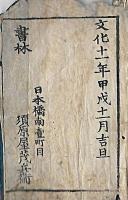 文化十一年甲戌十一月吉旦
日本橋南壹町目
書林
須原屋茂兵衛